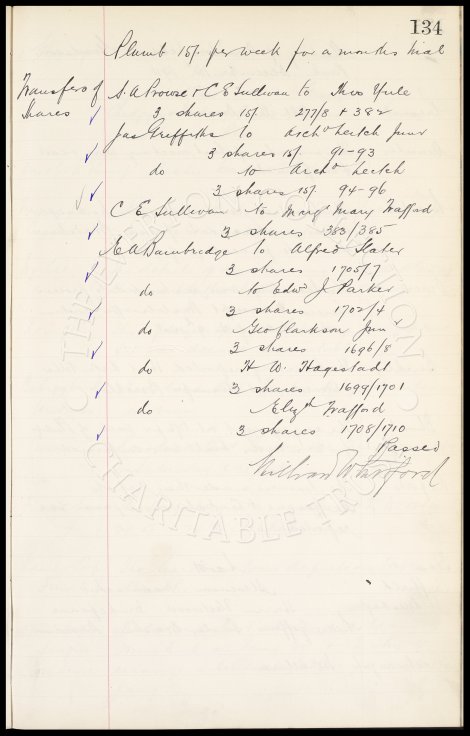 134
Plumb 15/. per week for a months trial
Transfers of Shares
S. A Prowse & C E Sullivan to Thos Yule
3 shares 15/. 277/8 & 382
Jas Griffiths to Archd Leitch Junr
3 shares 15/. 91-93
do to Archd Leitch
3 shares 15/. 94-96
C E Sullivan to Margt Mary Trafford
3 shares 383/385
E A Bainbridge to Alfred Slater
3 shares 1705/7
do to Edwd J Parker
3 shares 1702/4
do Geo Clarkson Junr
3 shares 1696/8
do H. W. Hagestadt
3 shares 1699/1701
do Elizth Trafford
3 shares 1708/1710
Passed
THE EVERTON COLLECTION
CHARITABLE TRUST